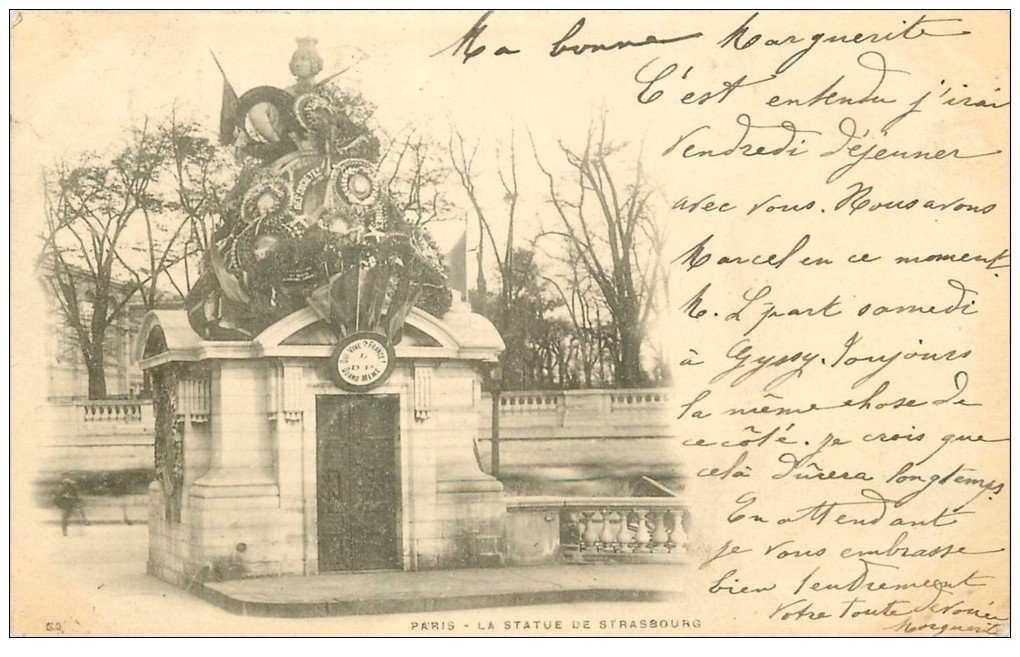 Ma bonne Marguerite
C'est entendu j'irai
Vendredi Déjeuner
avec vous. Nous avons
Marcel en ce moment
M. L part samedi
à Gyssy. Toujours
la même chose de
ce côté. je crois que
celà Dûrera longtemps
En attendant
je vous embrasse
bien tendrement
Votre toute dévouée
Marguerite
QUI VIVE ? FRANCE !
QUAND MÊME
PARIS - LA STATUE DE STRASBOURG